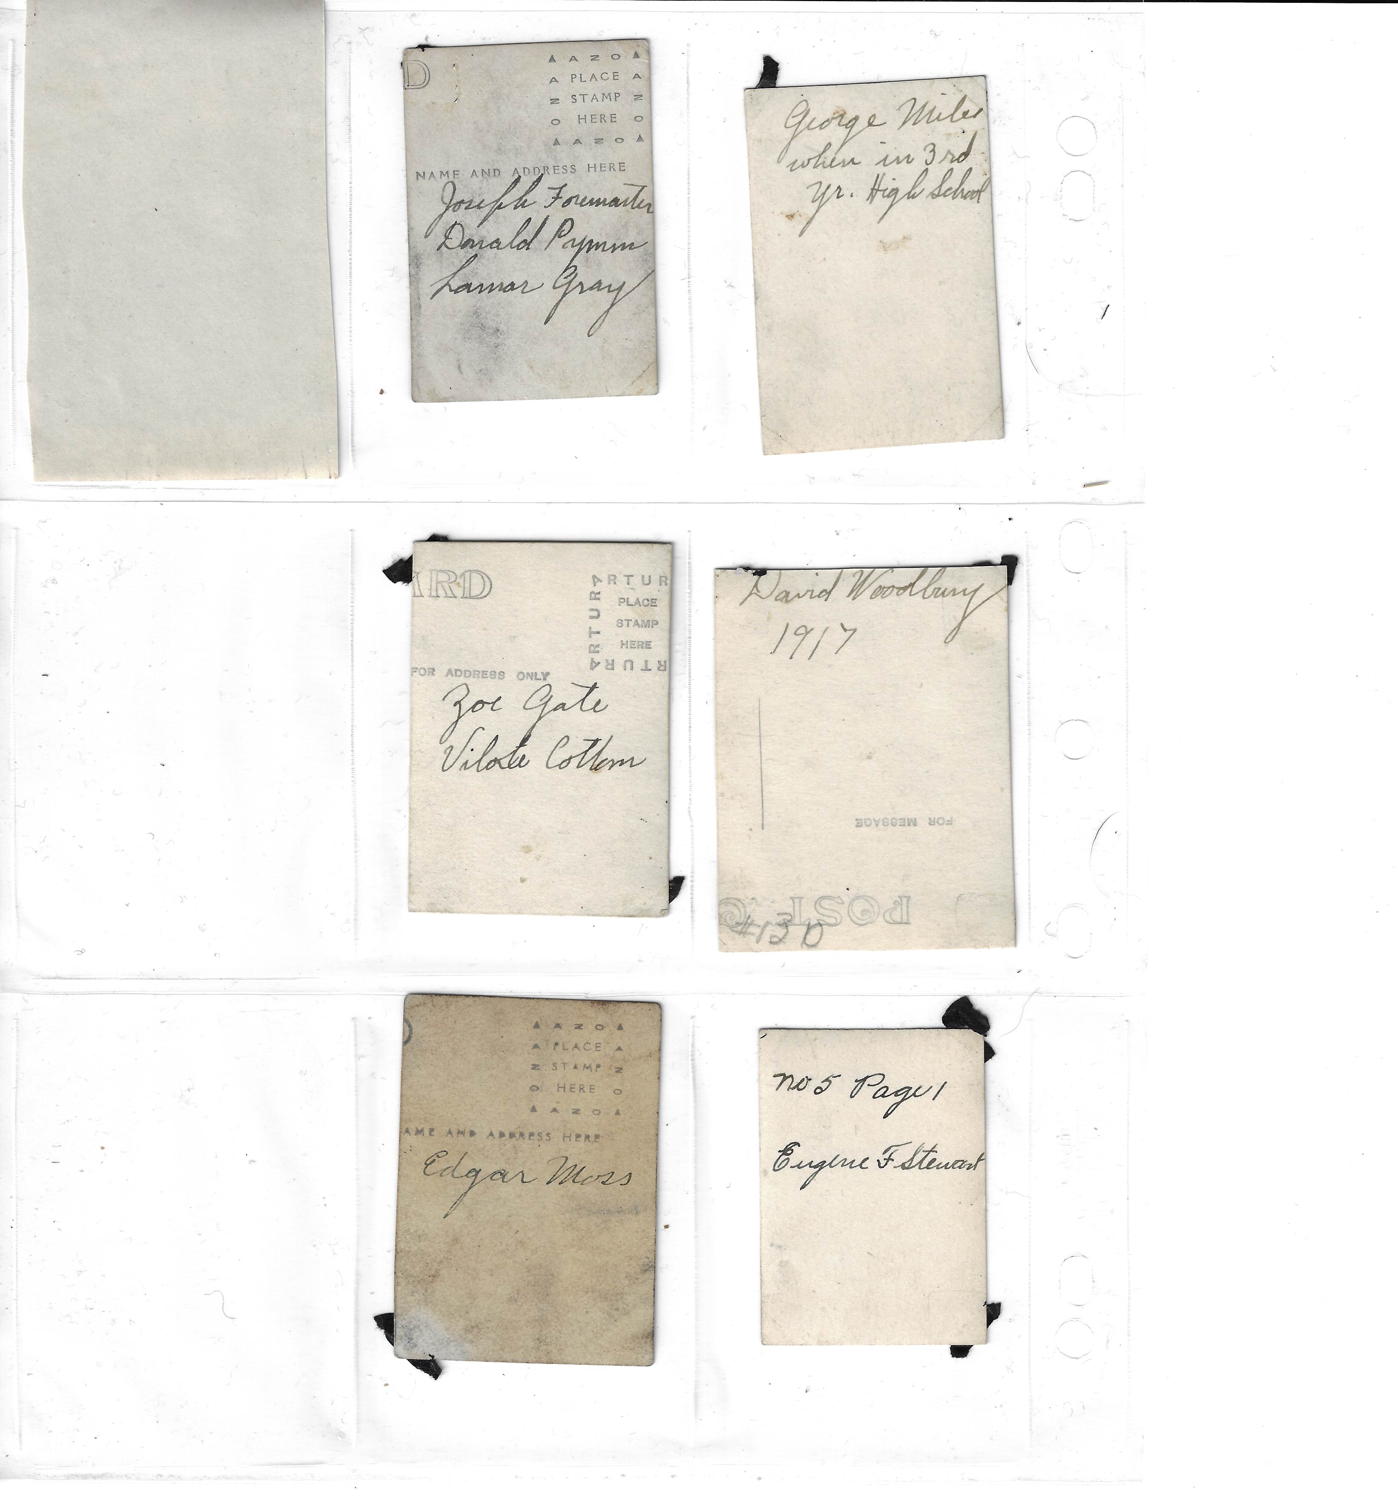 D
AZO
PLACE
STAMP
HERE
AZO
NAME AND ADDRESS HERE
Joseph Foremaster
Donald Pymm
Lamar Gray
George Miles
when in 3rd
Yr. High School
ARD
ARTURA
PLACE
STAMP
HERE
ARTURA
FOR ADDRESS ONLY
Zoe Gate
Vilate Cottam
David Woodbury
1917
FOR MESSAGE
POST C
#13 D
AZO
PLACE
STAMP
HERE
AZO
AME AND ADDRESS HERE
Edgar Moss
no 5 Page 1
Eugene F Stewart